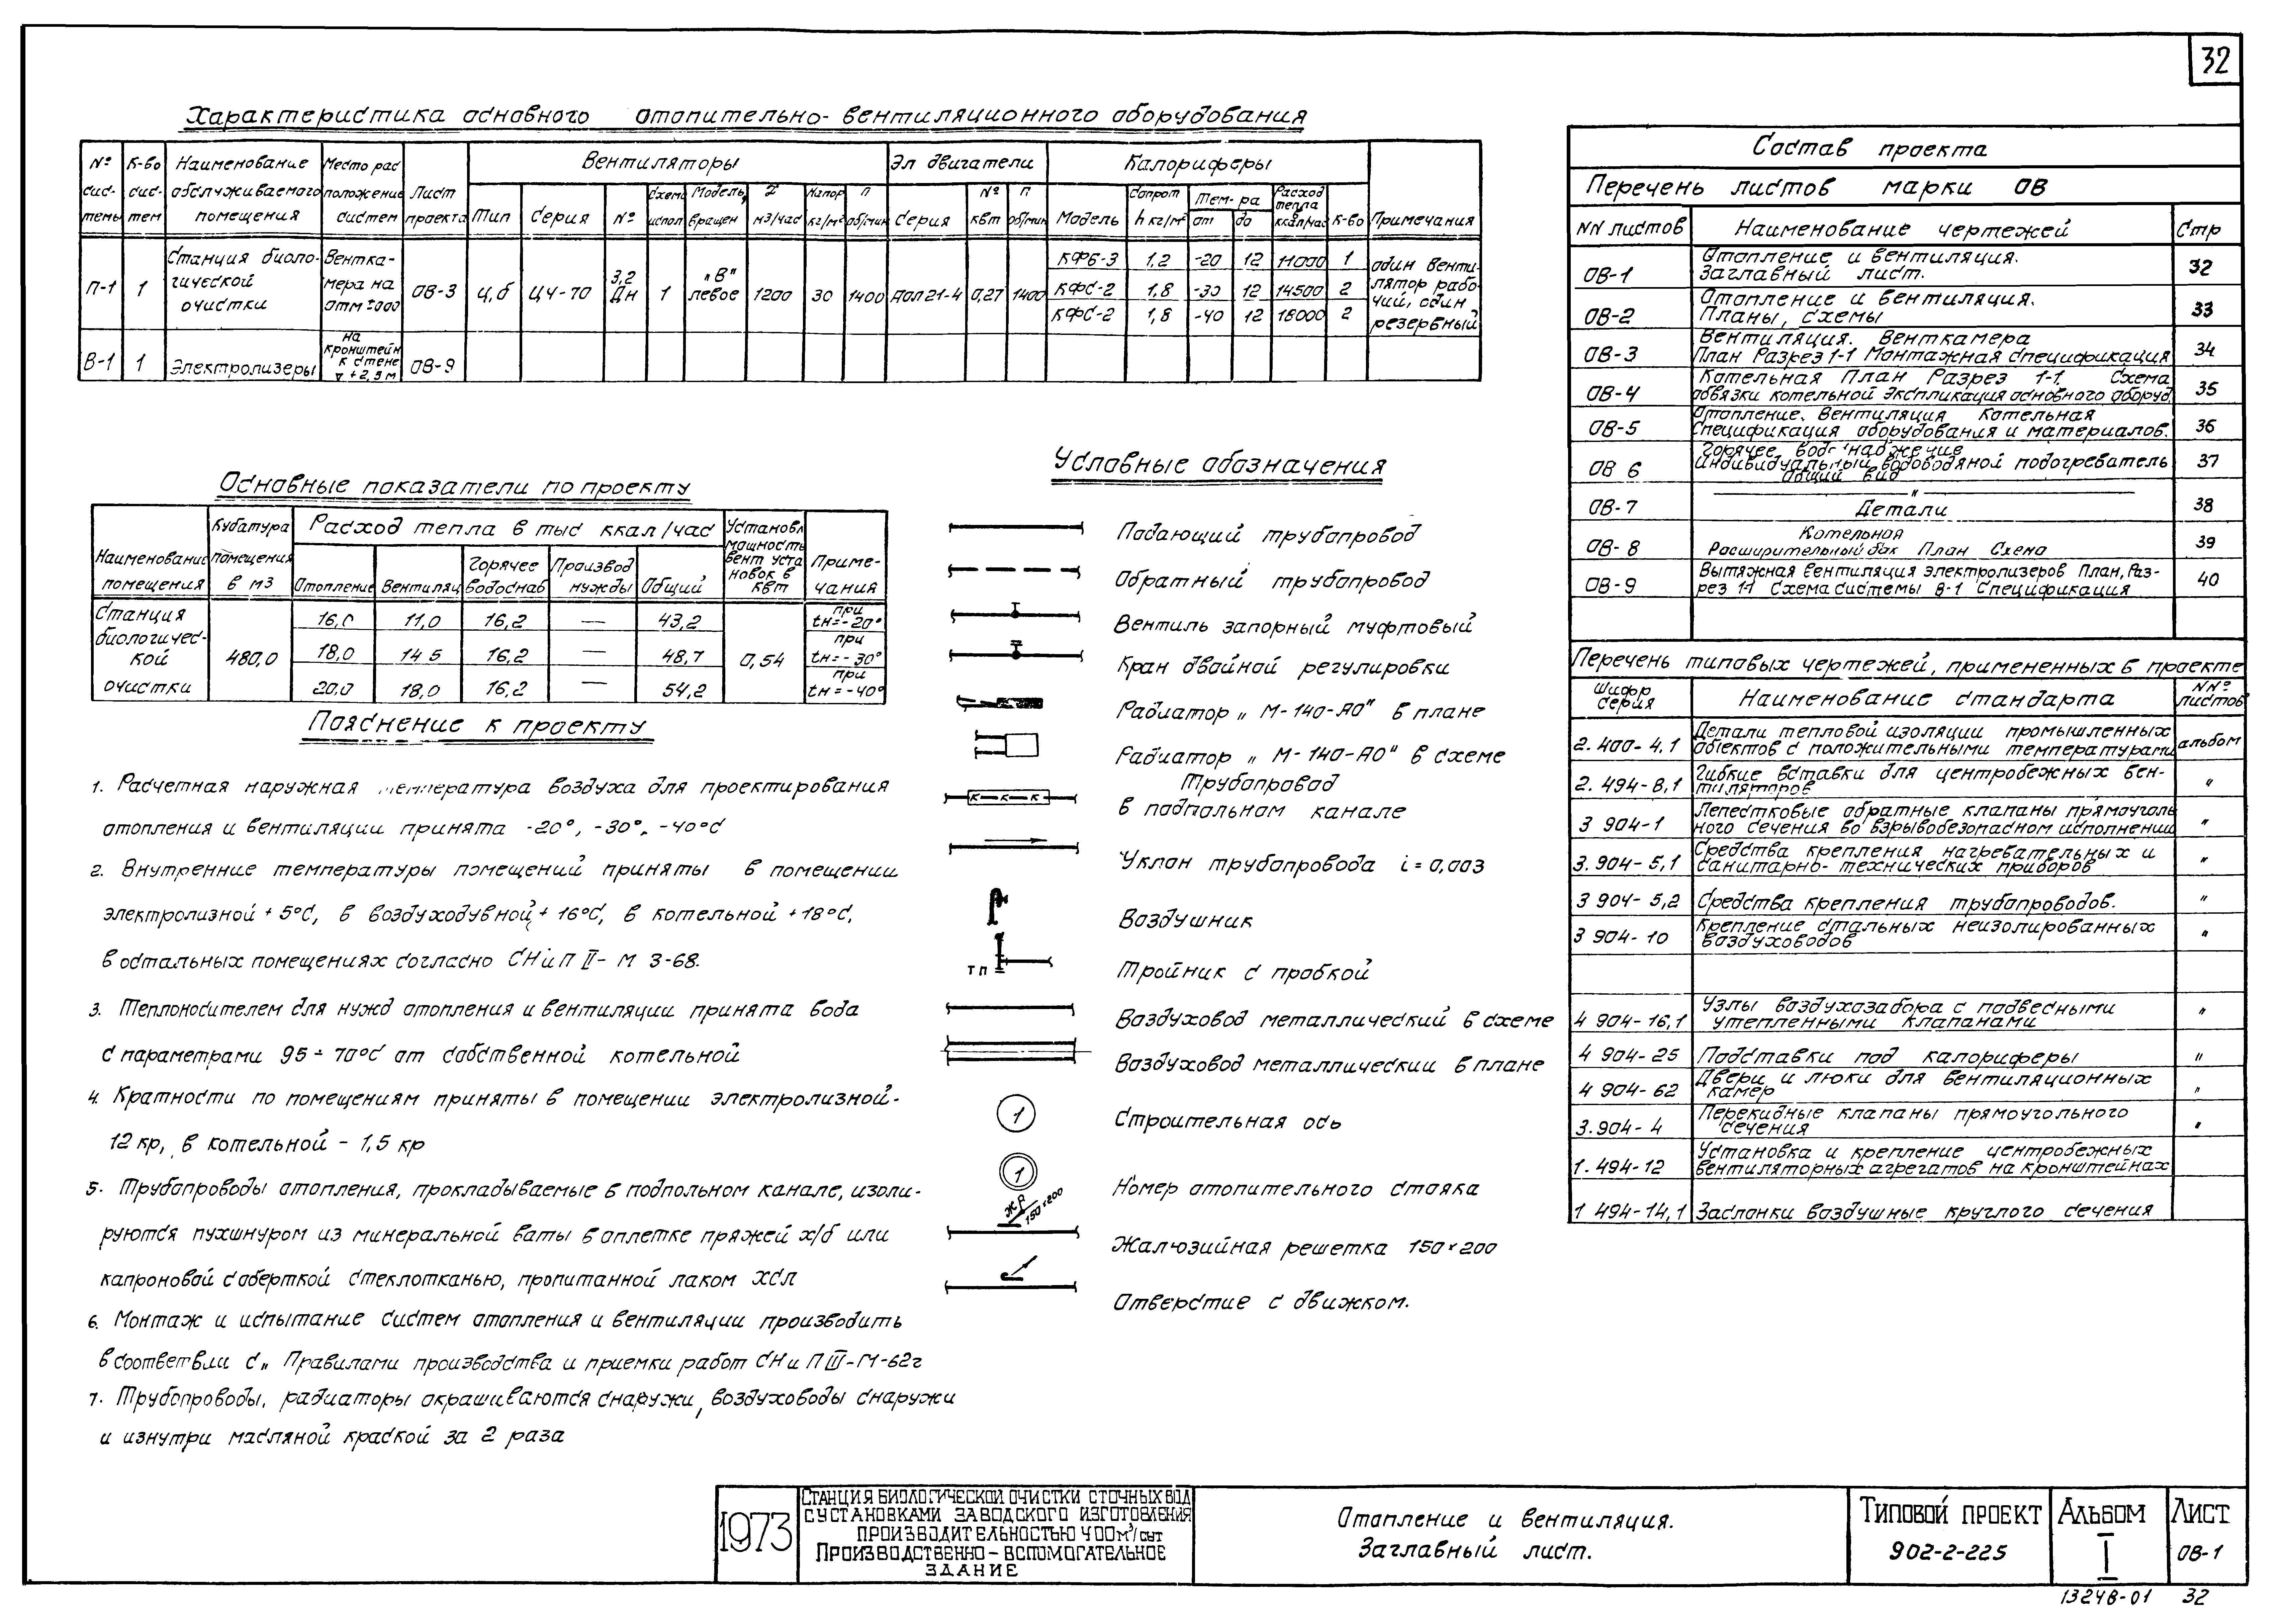 32
Характеристика основного отопительно-вентиляционного оборудования
№ системы
К-во систем
Наименование обслуживаемого помещения
Место расположение систем
Лист проекта
Вентиляторы
Эл двигатели
Калориферы
Примечания
Тип
Серия
№
Схема испол
Модель, вращен
м3/час
Напор кг/м²
п об/мин
Серия
№ квт
п об/мин
Модель
Сопрот h кг/м²
Тем-ра
от
до
Расход тепла ккал/час
К-во
П-1 1 Станция биологической очистки Венткамера на отм ±000 ОВ-3 Ц,б Ц4-70 3,2 1 "В" левое 1200 30 1400 АОЛ21-4 0,27 1400
КФБ-3 1,2 -20 12 11000 1
КФС-2 1,8 -30 12 14500 2
КФС-2 1,8 -40 12 18000 2
один вентилятор рабочий, один резервный
В-1 1 Электролизеры на кронштейн к стене ▽ +2,5 м ОВ-9
Основные показатели по проекту
Наименование помещения
Кубатура помещения в м3
Расход тепла в тыс ккал/час
Отопление
Вентиляц
Горячее водоснаб
Производ нужды
Общий
Установл мощность вент установок в квт
Примечания
Станция биологической очистки
480,0
16,0 11,0 16,2 — 43,2 при tн=-20°
18,0 14 5 16,2 — 48,7 0,54 при tн=-30°
20,0 18,0 16,2 — 54,2 при tн=-40°
Пояснение к проекту
1. Расчетная наружная температура воздуха для проектирования
отопления и вентиляции принята -20°, -30°, -40°С
2. Внутренние температуры помещений приняты в помещении
электролизной +5°С, в воздуходувной +16°С, в котельной +18°С,
в остальных помещениях согласно СНиП II-М 3-68.
3. Теплоносителем для нужд отопления и вентиляции принята вода
с параметрами 95÷70°С от собственной котельной
4. Кратности по помещениям приняты в помещении электролизной-
12 кр, в котельной - 1,5 кр
5. Трубопроводы отопления, прокладываемые в подпольном канале, изоли-
руются пухшнуром из минеральной ваты в оплетке пряжей х/б или
капроновой с оберткой стеклотканью, пропитанной лаком ХСЛ
6. Монтаж и испытание систем отопления и вентиляции производить
в соответвии с "Правилами производства и приемки работ СНиП III-Г1-62г
7. Трубопроводы, радиаторы окрашиваются снаружи, воздуховоды снаружи
и изнутри масляной краской за 2 раза
Условные обозначения
Подающий трубопровод
Обратный трубопровод
Вентиль запорный муфтовый
Кран двойной регулировки
Радиатор "М-140-АО" в плане
Радиатор "М-140-АО" в схеме
К-К-К
Трубопровод
в подпольном канале
Уклон трубопровода i=0,003
Воздушник
ТП
Тройник с пробкой
Воздуховод металлический в схеме
Воздуховод металлический в плане
1
Строительная ось
1
Номер отопительного стояка
ЖР
150×200
Жалюзийная решетка 150×200
Отверстие с движком.
Состав проекта
Перечень листов марки ОВ
NN листов Наименование чертежей Стр
ОВ-1 Отопление и вентиляция. Заглавный лист. 32
ОВ-2 Отопление и вентиляция. Планы, схемы 33
ОВ-3 Вентиляция. Венткамера План Разрез 1-1 Монтажная спецификация 34
ОВ-4 Котельная План Разрез 1-1. Схема обвязки котельной Экспликация основного оборуд 35
ОВ-5 Отопление. Вентиляция Котельная Спецификация оборудования и материалов. 36
ОВ 6 Горячее водоснабжение Индивидуальный водоводяной подогреватель Общий вид 37
ОВ-7 — " — Детали 38
ОВ-8 Котельная Расширительный бак План Схема 39
ОВ-9 Вытяжная вентиляция электролизеров План, Разрез 1-1 Схема системы В-1 Спецификация 40
Перечень типовых чертежей, примененных в проекте
Шифр серия Наименование стандарта NN° листов
2.400-4,1 Детали тепловой изоляции промышленных объектов с положительными температурами альбом
2.494-8,1 Гибкие вставки для центробежных вентиляторов "
3 904-1 Лепестковые обратные клапаны прямоугольного сечения во взрывобезопасном исполнении "
3.904-5,1 Средства крепления нагревательных и санитарно-технических приборов "
3 904-5,2 Средства крепления трубопроводов. "
3 904-10 Крепление стальных неизолированных воздуховодов "
4 904-16,1 Узлы воздухозабора с подвесными утепленными клапанами "
4 904-25 Подставки под калориферы "
4 904-62 Двери и люки для вентиляционных камер "
3.904-4 Перекидные клапаны прямоугольного сечения "
1.494-12 Установка и крепление центробежных вентиляторных агрегатов на кронштейнах
1 494-14,1 Заслонки воздушные круглого сечения
1973
Станция биологической очистки сточных вод
с установками заводского изготовления
производительностью 400 м³/сут
Производственно-вспомогательное
здание
Отопление и вентиляция.
Заглавный лист.
Типовой проект
902-2-225
Альбом
I
Лист
ОВ-1
13248-01 32